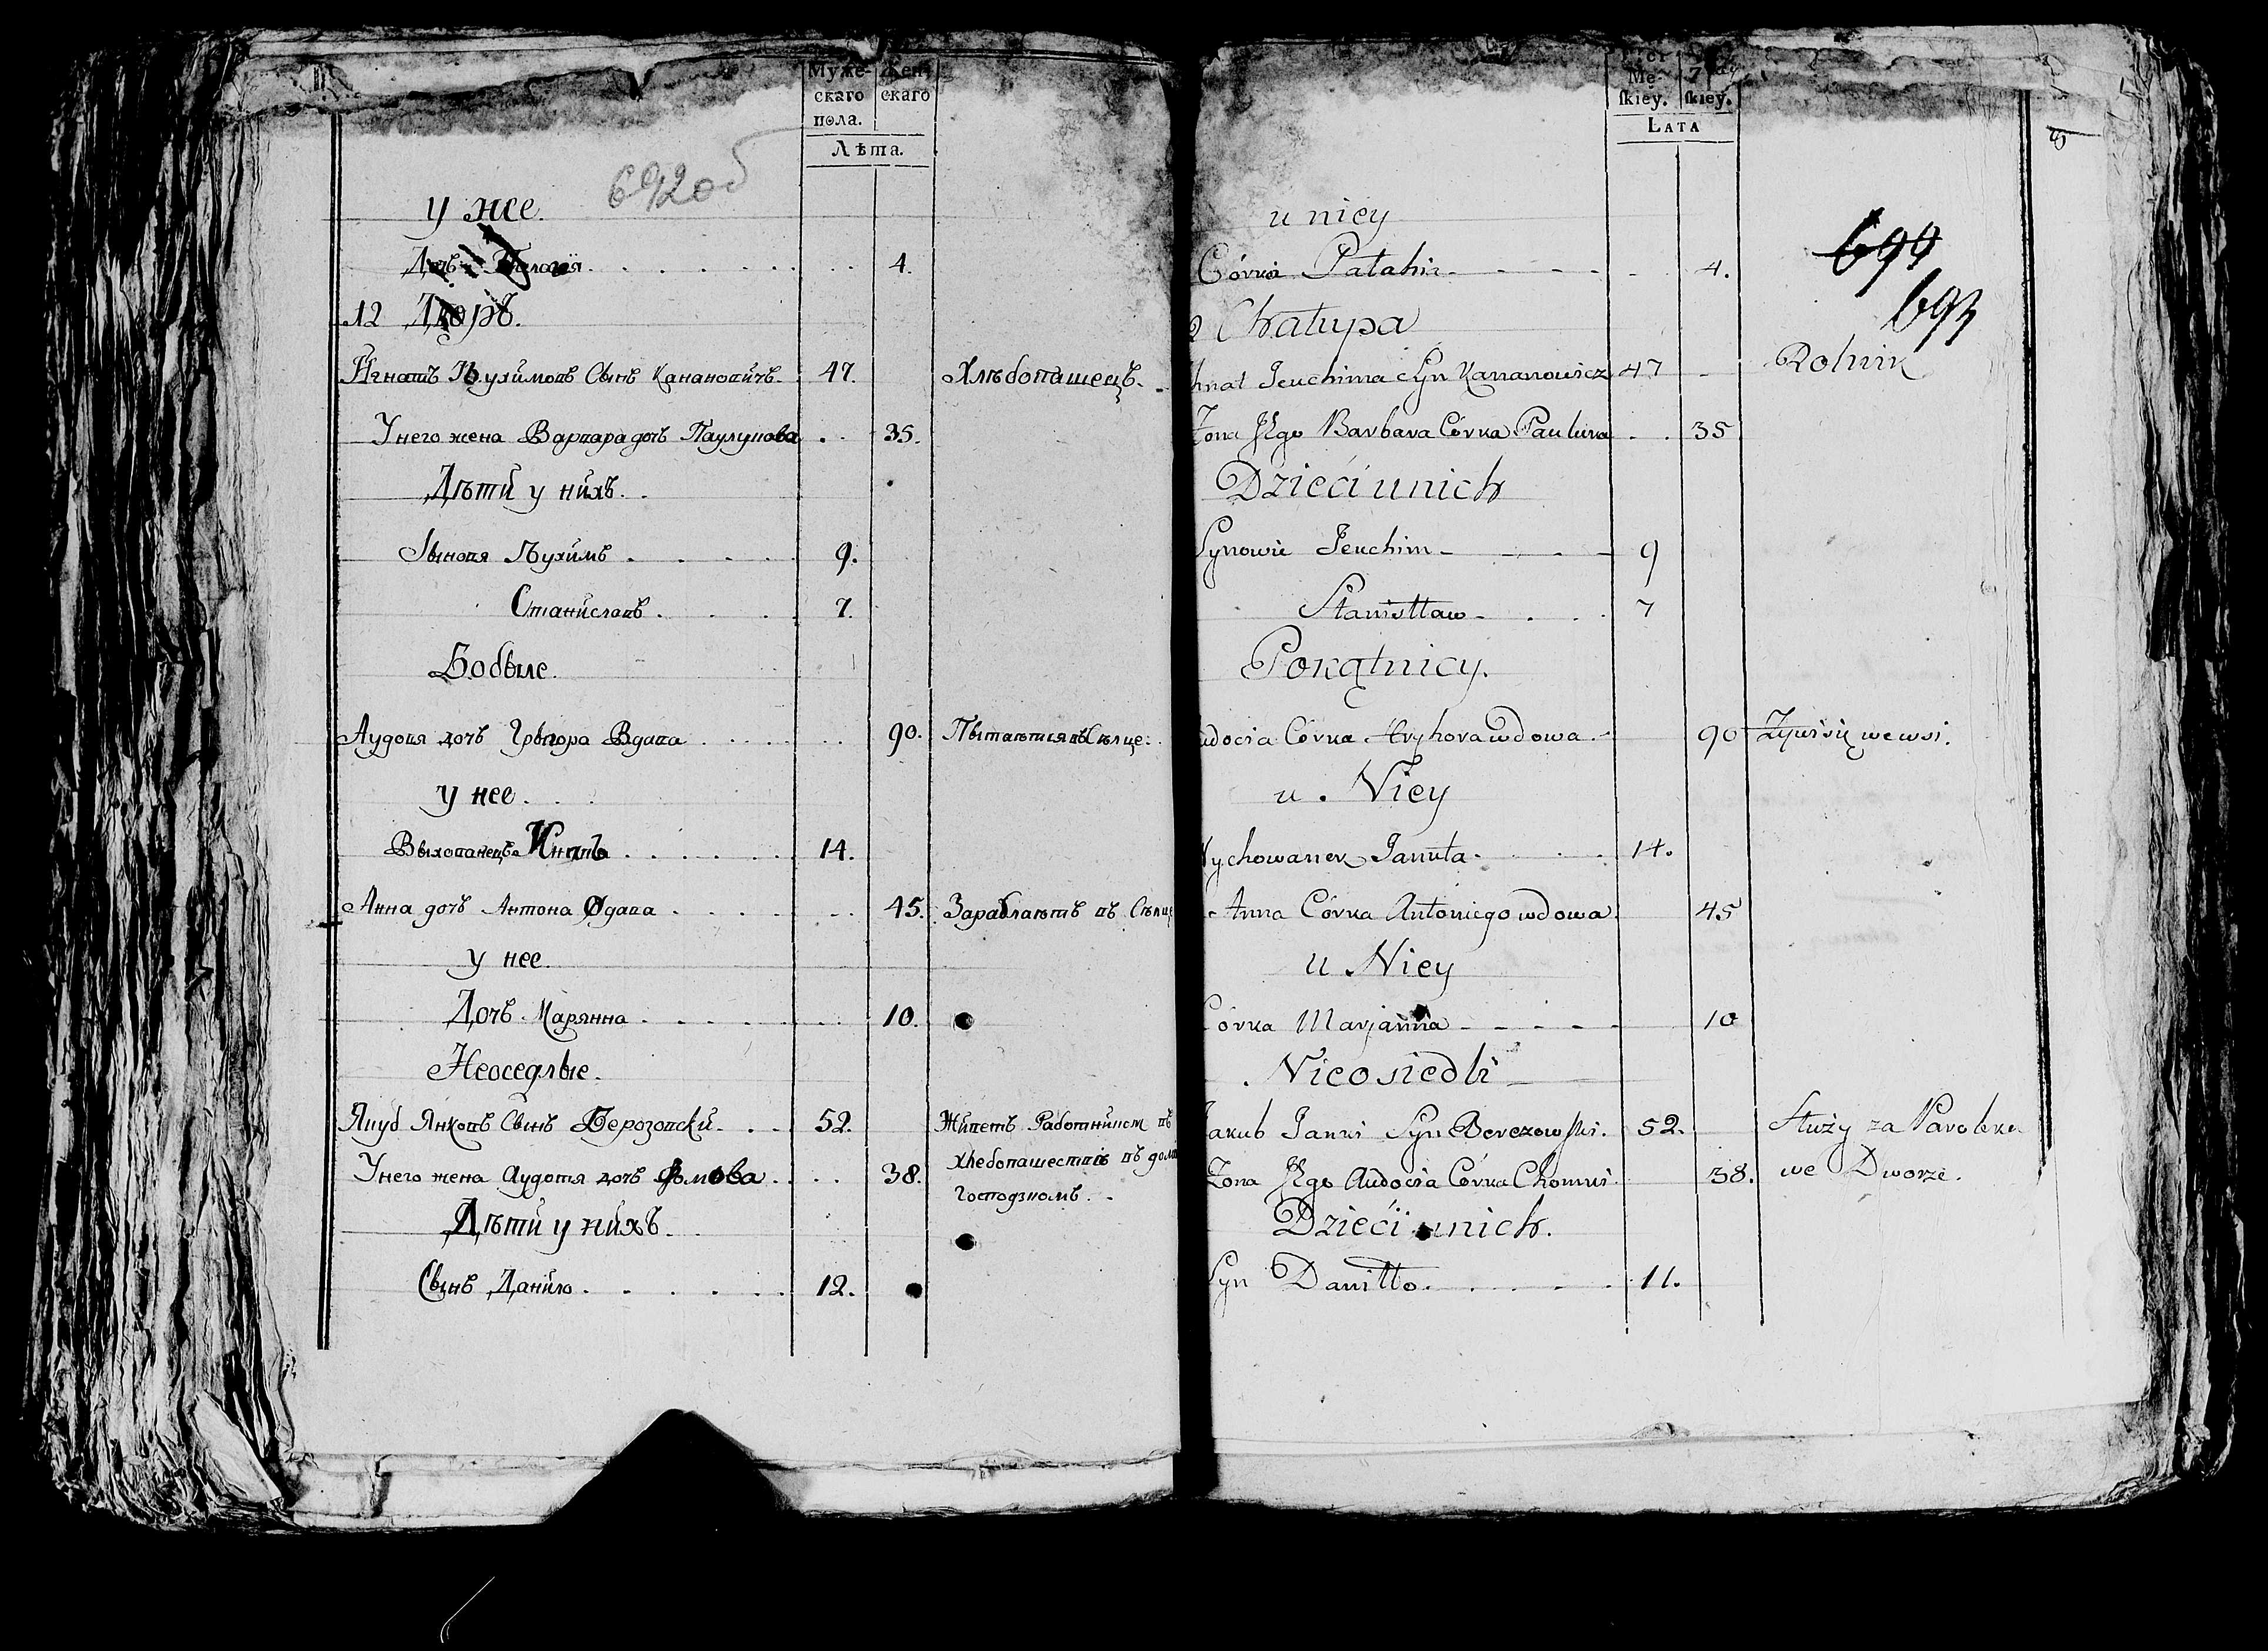 Муже-
скаго
пола.
Жен-
скаго
Лѣта.
692об
у же.
Дочь Палагія 4.
12 Дворъ.
Игнатъ Іеухимовъ Сынъ Канановичъ 47. Хлѣбопашецъ.
У него жена Варвара дочь Паулукова 35.
Дѣти у нихъ.
Сыновя Іеухимъ 9.
Станиславъ 7.
Бобыле.
Аудотя дочь Грыгора Вдава 90. Пытается въ Сѣлце.
у нее.
Выхованецъ 14.
Анна дочь Антона Вдава 45. Зараблаетъ въ Сѣлце
у нее.
Дочь Марянна 10.
Неоседлые.
Якуб Янковъ Сынъ Берозовски 52. Живетъ Работником въ
У него жена Аудотя дочь Фомова 38. хлебопашестве въ доме
Господзкомъ.
Дѣти у нихъ.
Сынъ Данило 12.
Męſkiey.
ſkiey.
LATA
u niey
Córka Patahia 4.
699
693
Chałupa
hnat Jeuchima Syn Kananowicz 47 Rolnik
Żona Jego Barbara Córka Pauluka 35
Dzieći u nich
Synowie Jeuchim 9
Stanisław 7
Pokątnicy.
udocia Córka Hryhora wdowa 90 Żywi się we wsi.
u Niey
Wychowanek Januta 14.
Anna Córka Antoniego wdowa 45
u Niey
Córka Marjanna 10
Nieosiedli
Jakub Janki Syn Berezowski. 52. Służy za Parobka
Żona Jego Audocia Córka Chomki 38. we Dworze.
Dzieći u nich.
Syn Daniłło 11.